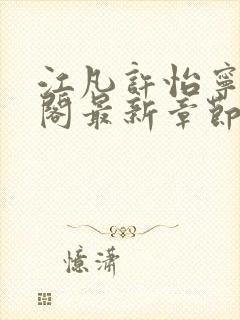 江凡許怡寧
閣最新章節
憶瀟